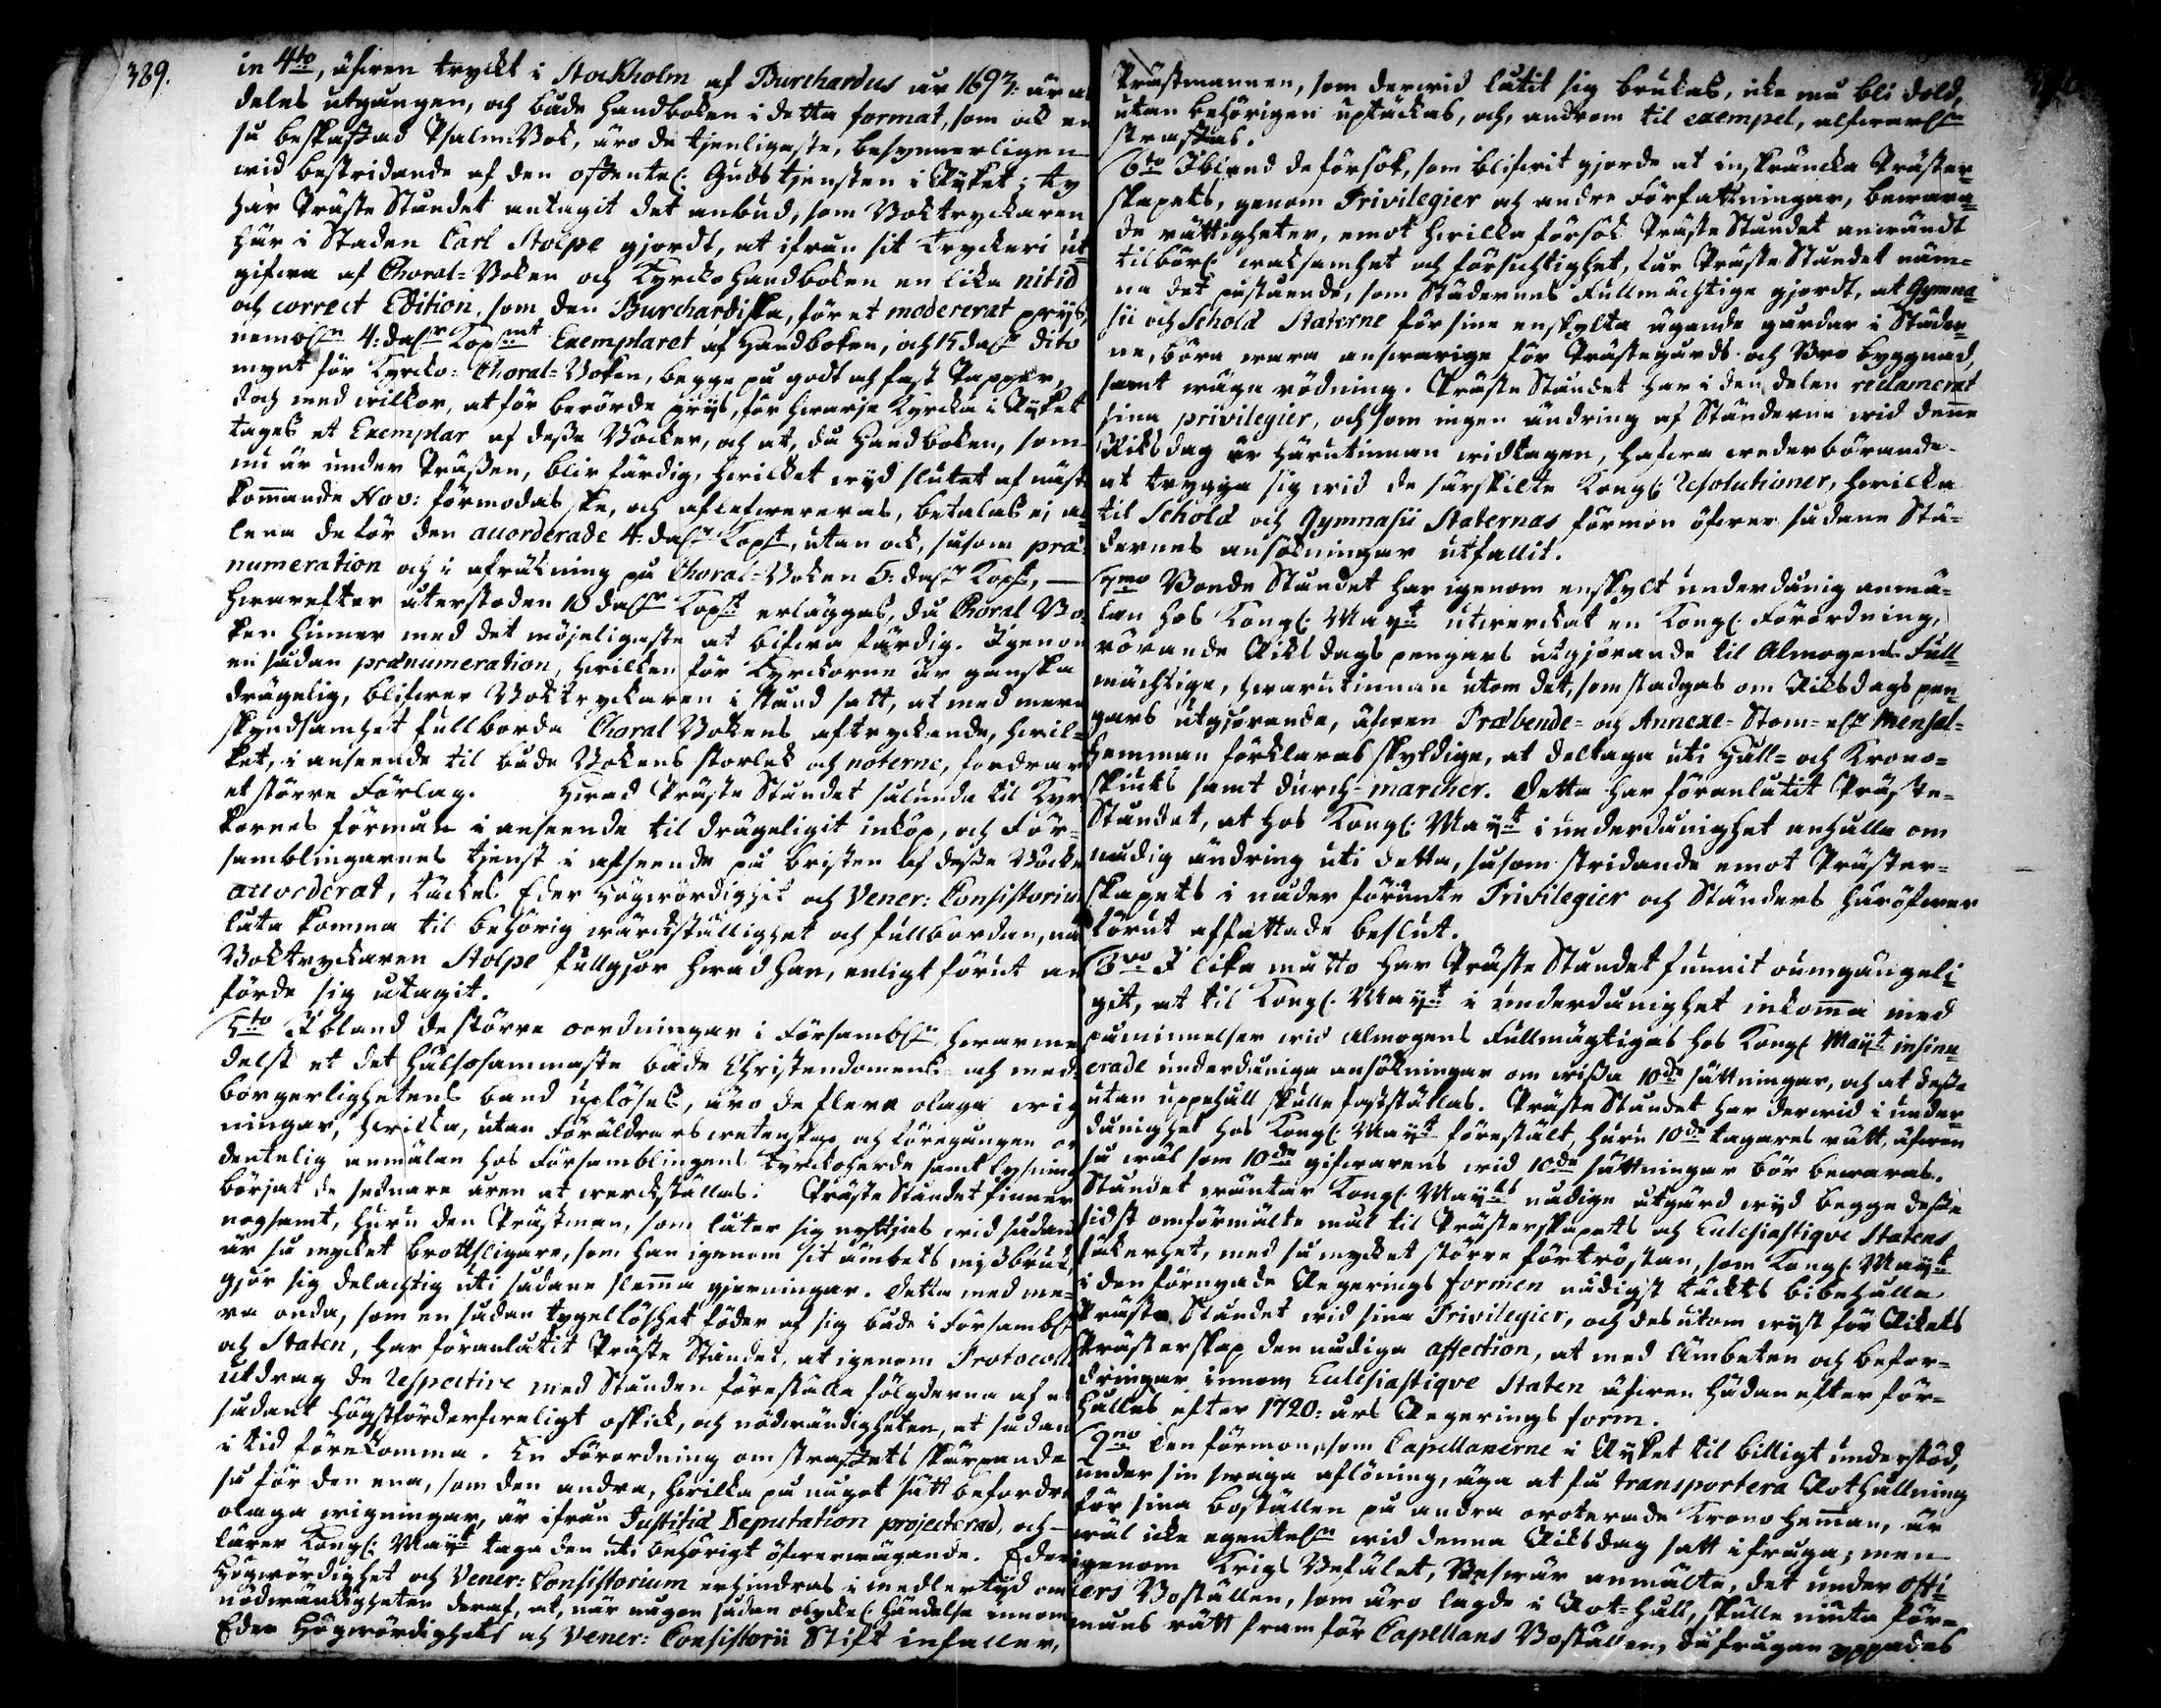 389.
in 4to, äfwen tryckt i Stockholm af Burchardus år 1693: är al
deles utgången, och både Handboken i detta format, som ock en
så beskaffad Psalm-Bok, äro de tjenligaste, besynnerligen
wid bestridande af den offentel: Gudstjensten i Ryket; ty
har Präste Ståndet antagit det anbud, som Boktryckaren
här i Staden Carl Stolpe gjordt, at ifrån sit tryckeri ut-
gifwa af Choral-Boken och Kyrcko Handboken en lika nitid
och correct Edition, som den Burchardiska, för et modererat prys,
nembl:n 4: dal:r Kop:mt Exemplaret af Handboken, och 15 dal:r dito
mynt för Kyrcko-Choral-Boken, begge på godt och fast Papper,
doch med wilkor, at för berörde prys, för hwarje Kyrcka i Ryket
tages et Exemplar af desse Böcker, och at, då Handboken, som
nu är under Prässen, blir färdig, hwilket wyd slutet af näst-
kommande Nov: förmodas ske, och aflefwereras, betalas ej al-
lena de för den accorderade 4: dal:r Kop:t, utan ock, såsom præ-
numeration och i afräkning på Choral-Boken 5: dal:r Kop:t, —
hwarefter återstoden 10 dal:r Kop:t erläggas, då Choral Bo-
ken hinner med det möjeligaste at blifwa färdig. Igenom
en sådan prænumeration, hwilken för Kyrckorne är ganska
drägelig, blifwer Boktryckaren i stånd satt, at med mera
skyndsamhet fullborda Choral Bokens aftryckande, hwil-
ket, i anseende til både Bokens storlek och noterne, fordrar
et större Förlag. Hwad Präste Ståndet således til Kyr-
kornes förmån i anseende til drägeligit inköp, och För-
samblingarnes tjenst i afseende på bristen af desse Böcker
accorderat, täckes Eder Högwördighet och Vener: Consistorium
låta komma til behörig wärckställighet och fullbordan, när
Boktryckaren Stolpe fullgjör hwad han, enligt förut an
förde sig åtagit.
5to Ibland de större oordningar i Försambl:n, hwarme-
delst et det hälsosammaste både Christendomens och med-
borgerlighetens band uplöses, äro de flere olaga wig-
ningar, hwilka, utan Föräldrars wetenskap och föregången or
dentelig anmälan hos Församblingens Kyrckoherde samt lysning
börjat de sednare åren at werckställas. Präste Ståndet finner
nogsamt, huru den Prästman, som låter sig nyttjas wid sådant
är så mycket brottsligare, som han igenom sit ämbets missbruk,
gjör sig delachtig uti sådane slemma gjerningar. Detta med me-
ra onda, som en sådan tygellöshet föder af sig både i Försambl:n
och Staten, har föranlåtit Präste Ståndet, at igenom Protocolls
utdrag de Respective med Stånden föreställa fölgderna af et
sådant högstförderfweligt ofskick, och nödwändigheten, at sådan
i tid förekomma. En Förordning om straffets skärpande
så för den ena, som den andra, hwilka på något sätt befordra
olaga wigningar, är ifrån Justitiæ Deputation projecterad, och —
lärer Kongl: May:t taga den uti behörigt öfwerwägande. Eder
Högwördighet och Vener: Consistorium erhindras i medlertyd om
nödwändigheten deraf, at, när någon sådan olyckel: händelse innom
Eder Högwördighets och Vener: Consistorii Stift infaller,
Prästmannen, som derwid låtit sig brukas, icke må bli dold,
utan behörigen uptäckas, och, androm til exempel, alfwarl:n
straffas.
6to Ibland de försök, som blifwit gjorde at inskräncka Präster-
skapets, genom Privilegier och andre Författningar, bewara-
de rättigheter, emot hwilka försök Präste Ståndet anwändt
tilbörl: waksamhet och försichtighet, lär Präste Ståndet näm-
na det påstående, som Städernes Fullmächtige gjordt, at Gymna-
sii och Scholæ Staterne för sine enskylta ägande gårdar i Städer-
ne, böra wara answarige för Prästegårds och Bro byggnad,
samt wäga rödning. Präste Ståndet har i den delen reclamerat
sina privilegier, och som ingen ändring af Ständerne wid denne
Riksdag är härutinnan widtagen, hafwa wederbörande
at trygga sig wid de särskilte Kongl: Resolutioner, hwilka
til Scholæ och Gymnasii Staternas förmon öfwer sådane Stä-
dernes ansökningar utfallit.
7mo Bonde Ståndet har igenom enskylt underdånig anmä-
lan hos Kongl: May:t utwerckat en Kongl: Förordning,
rörande Riksdags pengars utgjörande til Almogens Full-
mächtige, hwarutinnan utom det, som stadgas om Riksdags pen-
gars utgjörande, äfwen Præbende- och Annexe- Stom- el:r Mensal-
Hemman förklaras skyldige, at deltaga uti Håll- och Krono-
skiuts samt durch-marcher. Detta har föranlåtit Präste-
Ståndet, at hos Kongl: May:t i underdånighet anhålla om
nådig ändring uti detta, såsom stridande emot Präster-
skapets i nåder förunte Privilegier och Ständers häröfwer
förut affattade beslut.
8vo I lika måtto har Präste Ståndet funnit oumgängeli-
git, at til Kongl: May:t i underdånighet inkomma med
påminnelser wid Almogens Fullmägtigas hos Kongl: May:t insinu-
erade underdåniga ansökningar om wissa 10de sättningar, och at desse
utan uppehåll skulle fastställas. Präste Ståndet har derwid i under-
dånighet hos Kongl: May:t förestält, huru 10de tagares rätt, äfwen
så wäl som 10de gifwarens wid 10de sättningar bör bewaras.
Ståndet wäntar Kongl: May:ts nådige åtgärd wyd begge desse
sidst omförmälte mål til Prästerskapets och Ecclesiastiqve Statens
säkerhet, med så mycket större förtröstan, som Kongl: May:t
i den förnyade Regerings formen nådigst täckts bibehålla
Präste Ståndet wid sina Privilegier, och desutom wyst för Rikets
Prästerskap den nådiga affection, at med Ämbeten och befor-
dringar innom Ecclesiastiqve Staten äfwen hädanefter för-
hålles efter 1720: års Regerings form.
9no Den förmon, som Capellanerne i Ryket til billigt understöd,
under sin swaga aflöning, äga at få transportera Rothållning
för sina boställen på andra oroterade Krono Hemman, är
wäl icke egentel:n wid denna Riksdag satt i fråga; men
igenom Krigs Befälet, Beswär anmälte, det under Offi-
cers Boställen, som äro lagde i Rot-håll, skulle niuta för-
måns rätt framför Capellans Boställen, då frågan yppades